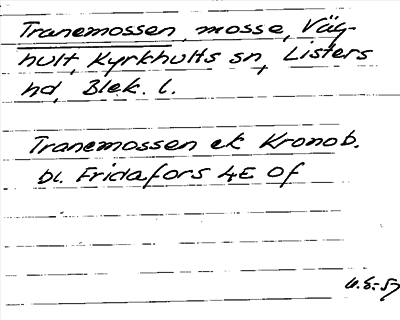 Tranemossen, mosse, Väg-
hult, Kyrkhults sn, Listers
hd, Blek. l.
Tranemossen ek Kronob.
bl. Fridafors 4E 0f